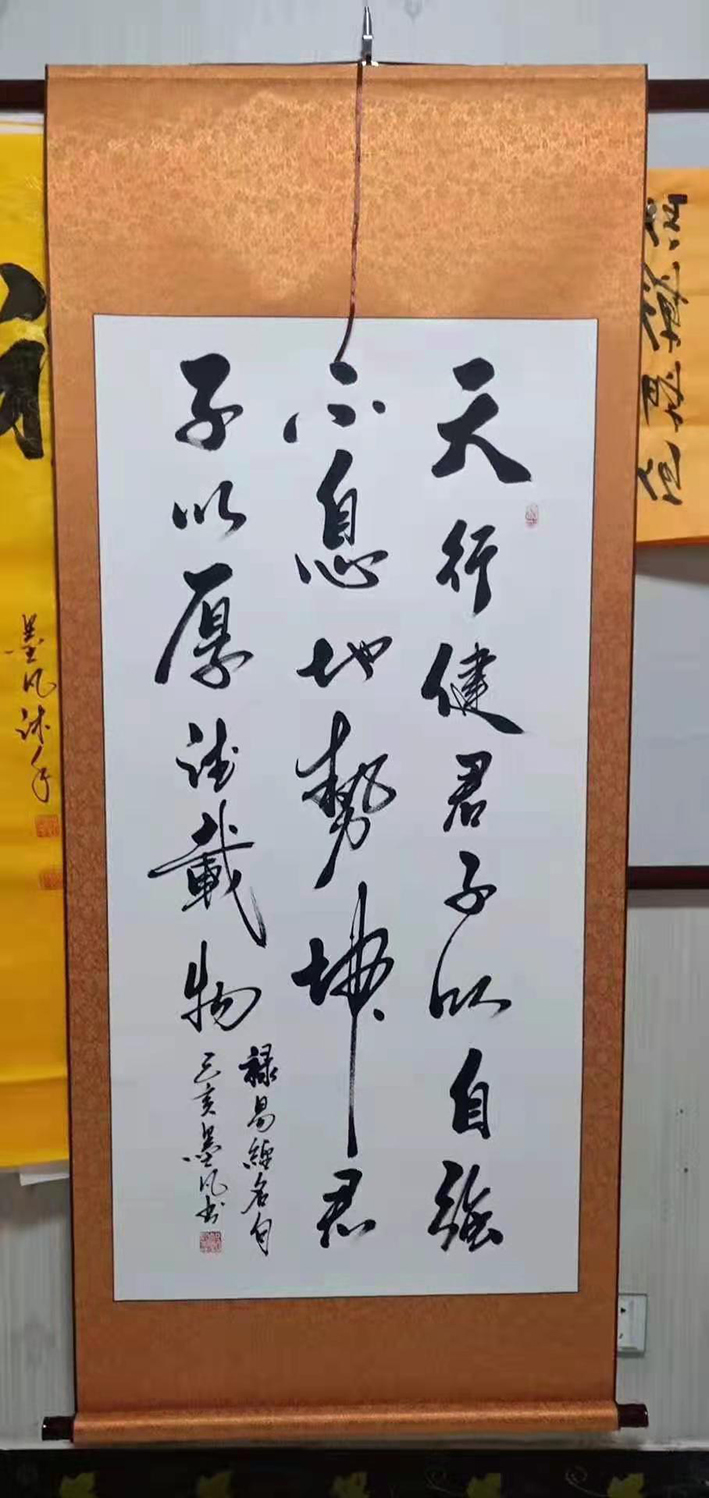 天行健君子以自強
不息地勢坤君
子以厚德載物
禄易經名句
己亥墨风书
墨风沐手